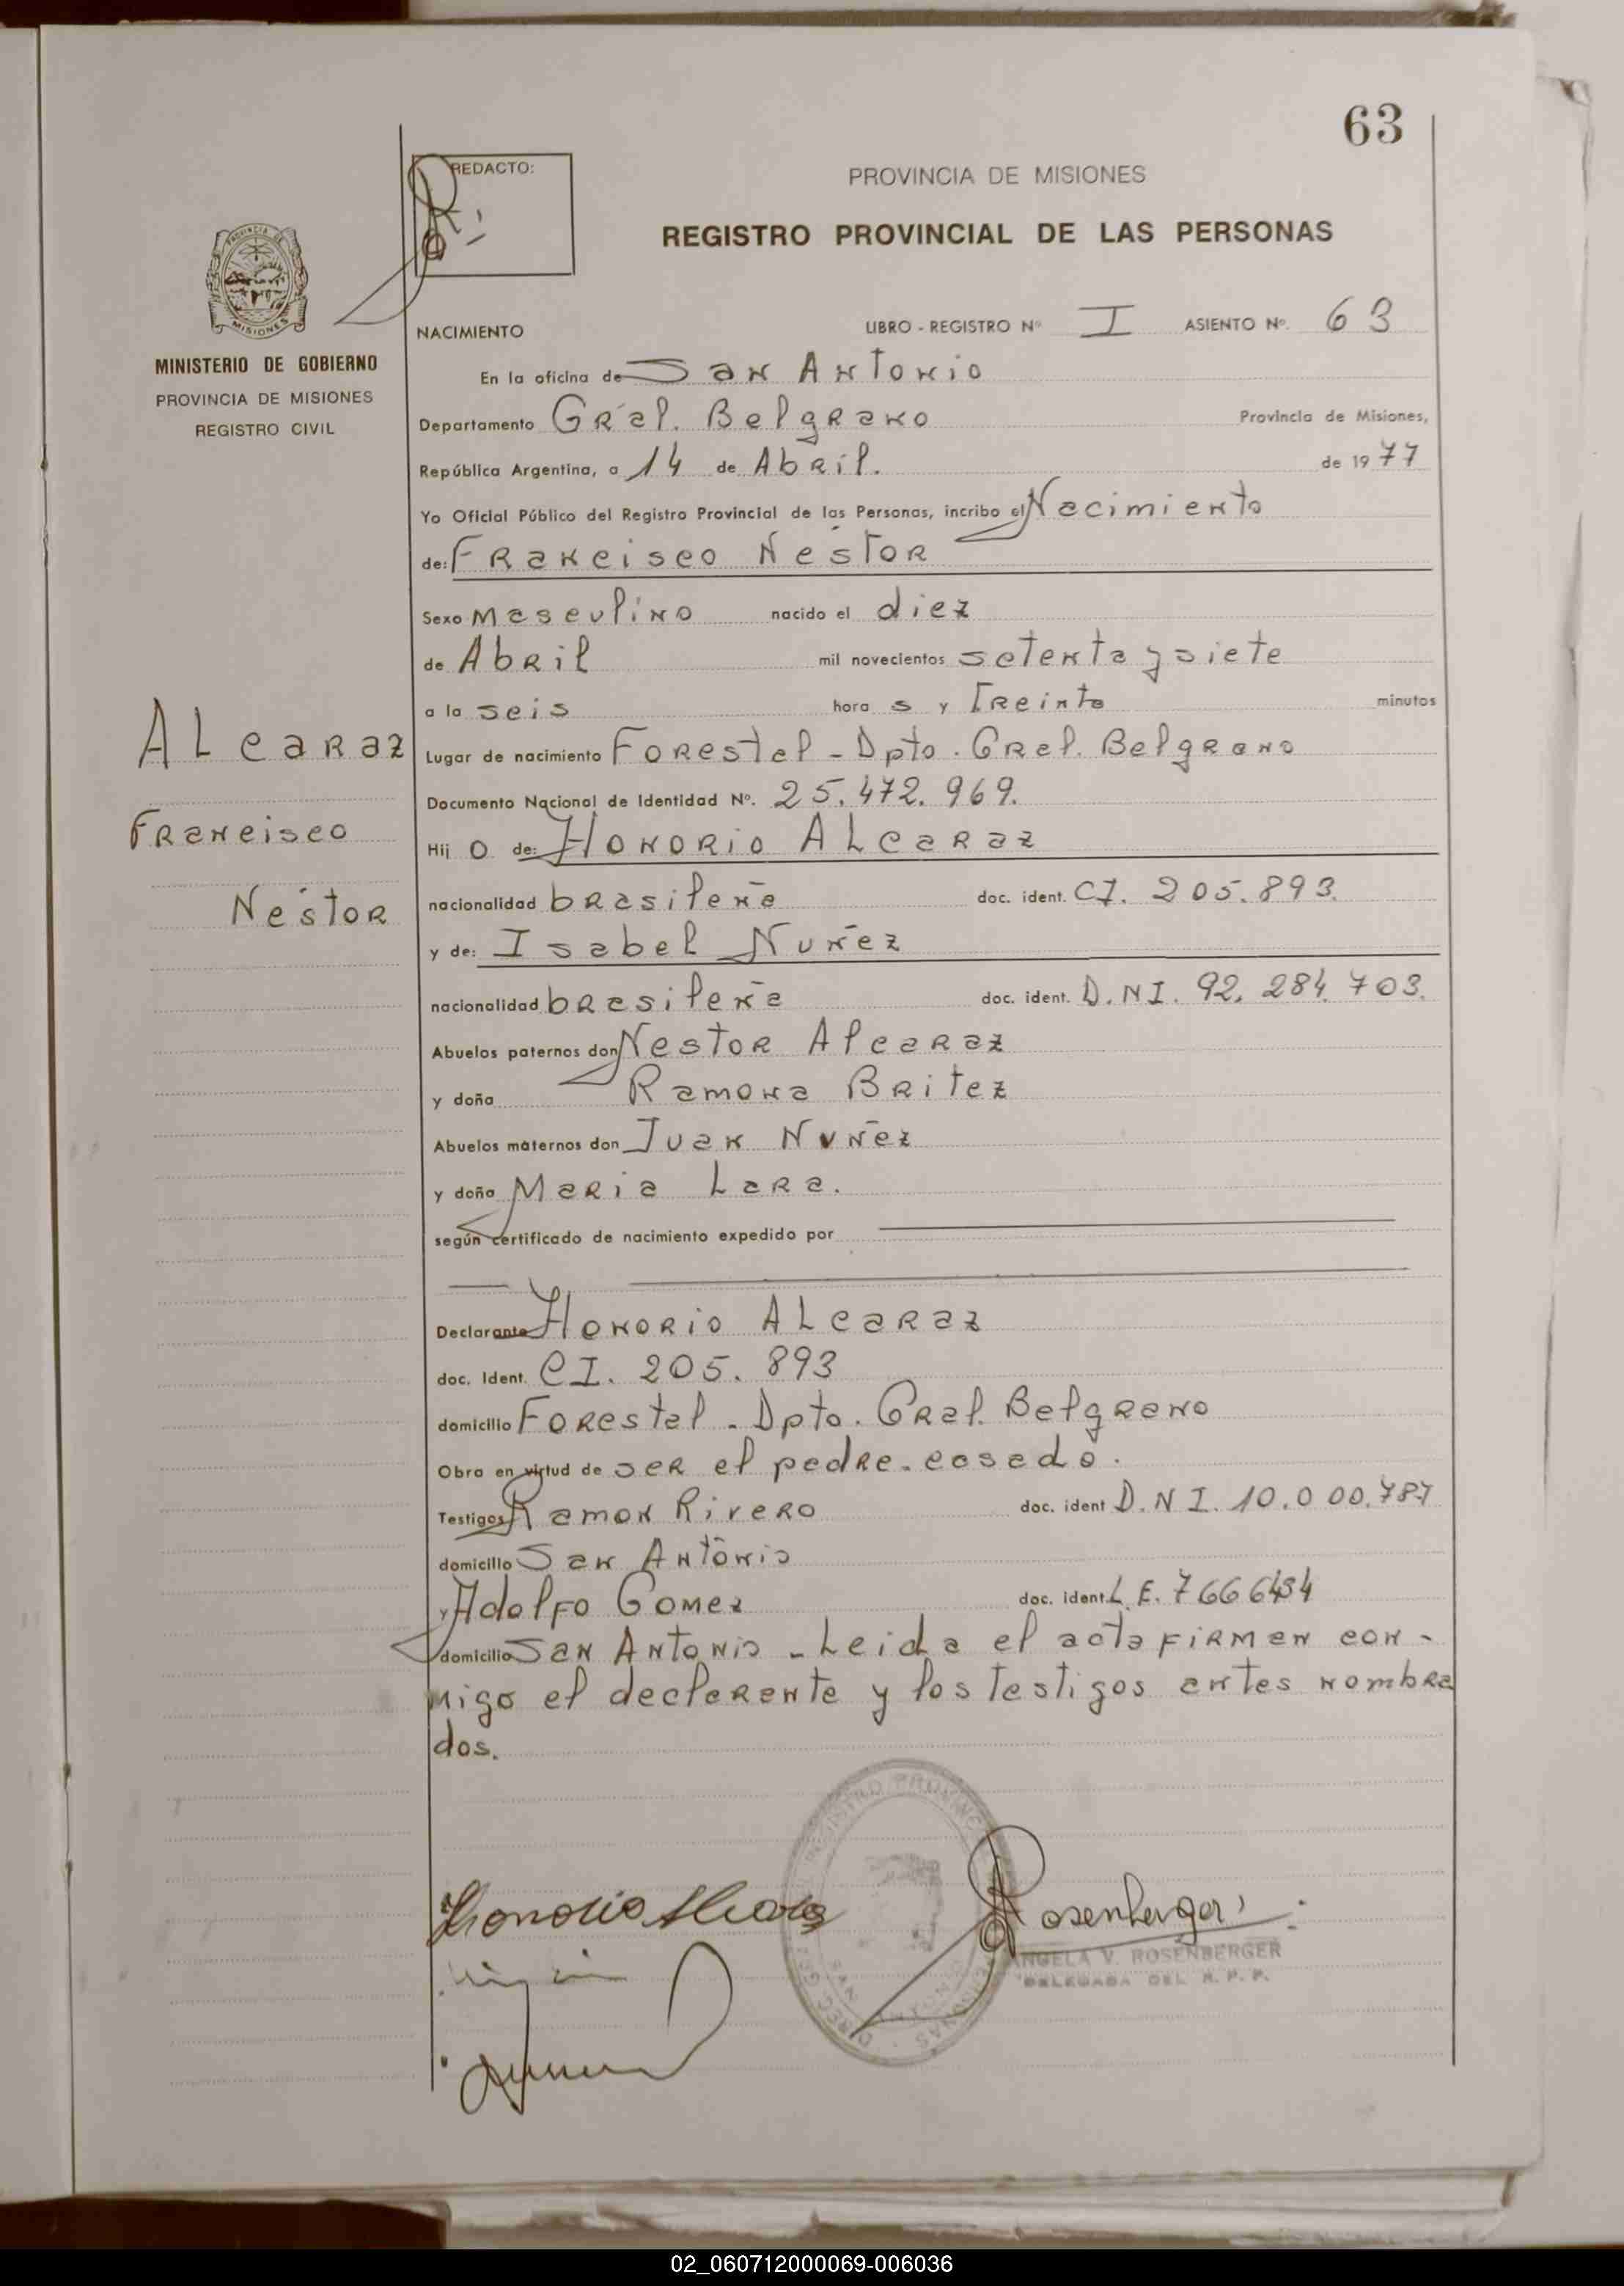 63
REDACTO:
PROVINCIA DE MISIONES
REGISTRO PROVINCIAL DE LAS PERSONAS
PROVINCIA DE
MISIONES
MINISTERIO DE GOBIERNO
PROVINCIA DE MISIONES
REGISTRO CIVIL
NACIMIENTO LIBRO - REGISTRO Nº I ASIENTO Nº. 63
En la oficina de San Antonio
Departamento Gral. Belgrano Provincia de Misiones,
República Argentina, a 14 de Abril. de 1977
Yo Oficial Público del Registro Provincial de las Personas, incribo el Nacimiento
de: Francisco Nestor
Sexo Masculino nacido el diez
de Abril mil novecientos setenta y siete
a la seis hora s y treinta minutos
Alcaraz
Francisco
Nestor
Lugar de nacimiento Forestal - Dpto. Gral. Belgrano
Documento Nacional de Identidad Nº. 25.472.969.
Hij o de: Honorio Alcaraz
nacionalidad brasileña doc. ident. CI. 205.893.
y de: Isabel Nuñez
nacionalidad brasileña doc. ident. D.NI. 92.284.703.
Abuelos paternos don Nestor Alcaraz
y doña Ramona Britez
Abuelos maternos don Juan Nuñez
y doña Maria Lara.
según certificado de nacimiento expedido por
Declarante Honorio Alcaraz
doc. Ident. CI. 205.893
domicilio Forestal - Dpto. Gral. Belgrano
Obra en virtud de ser el padre. casado.
Testigos Ramon Rivero doc. ident D.N I. 10.000.787
domicilio San Antonio
y Adolfo Gomez doc. ident L.E. 7666434
domicilio San Antonio - Leida el acta firman con-
migo el declarante y los testigos antes nombra
dos.
Honorio Alcaraz
Rosenberger
ANGELA V. ROSENBERGER
DELEGADA DEL R. P. P.
02_060712000069-006036